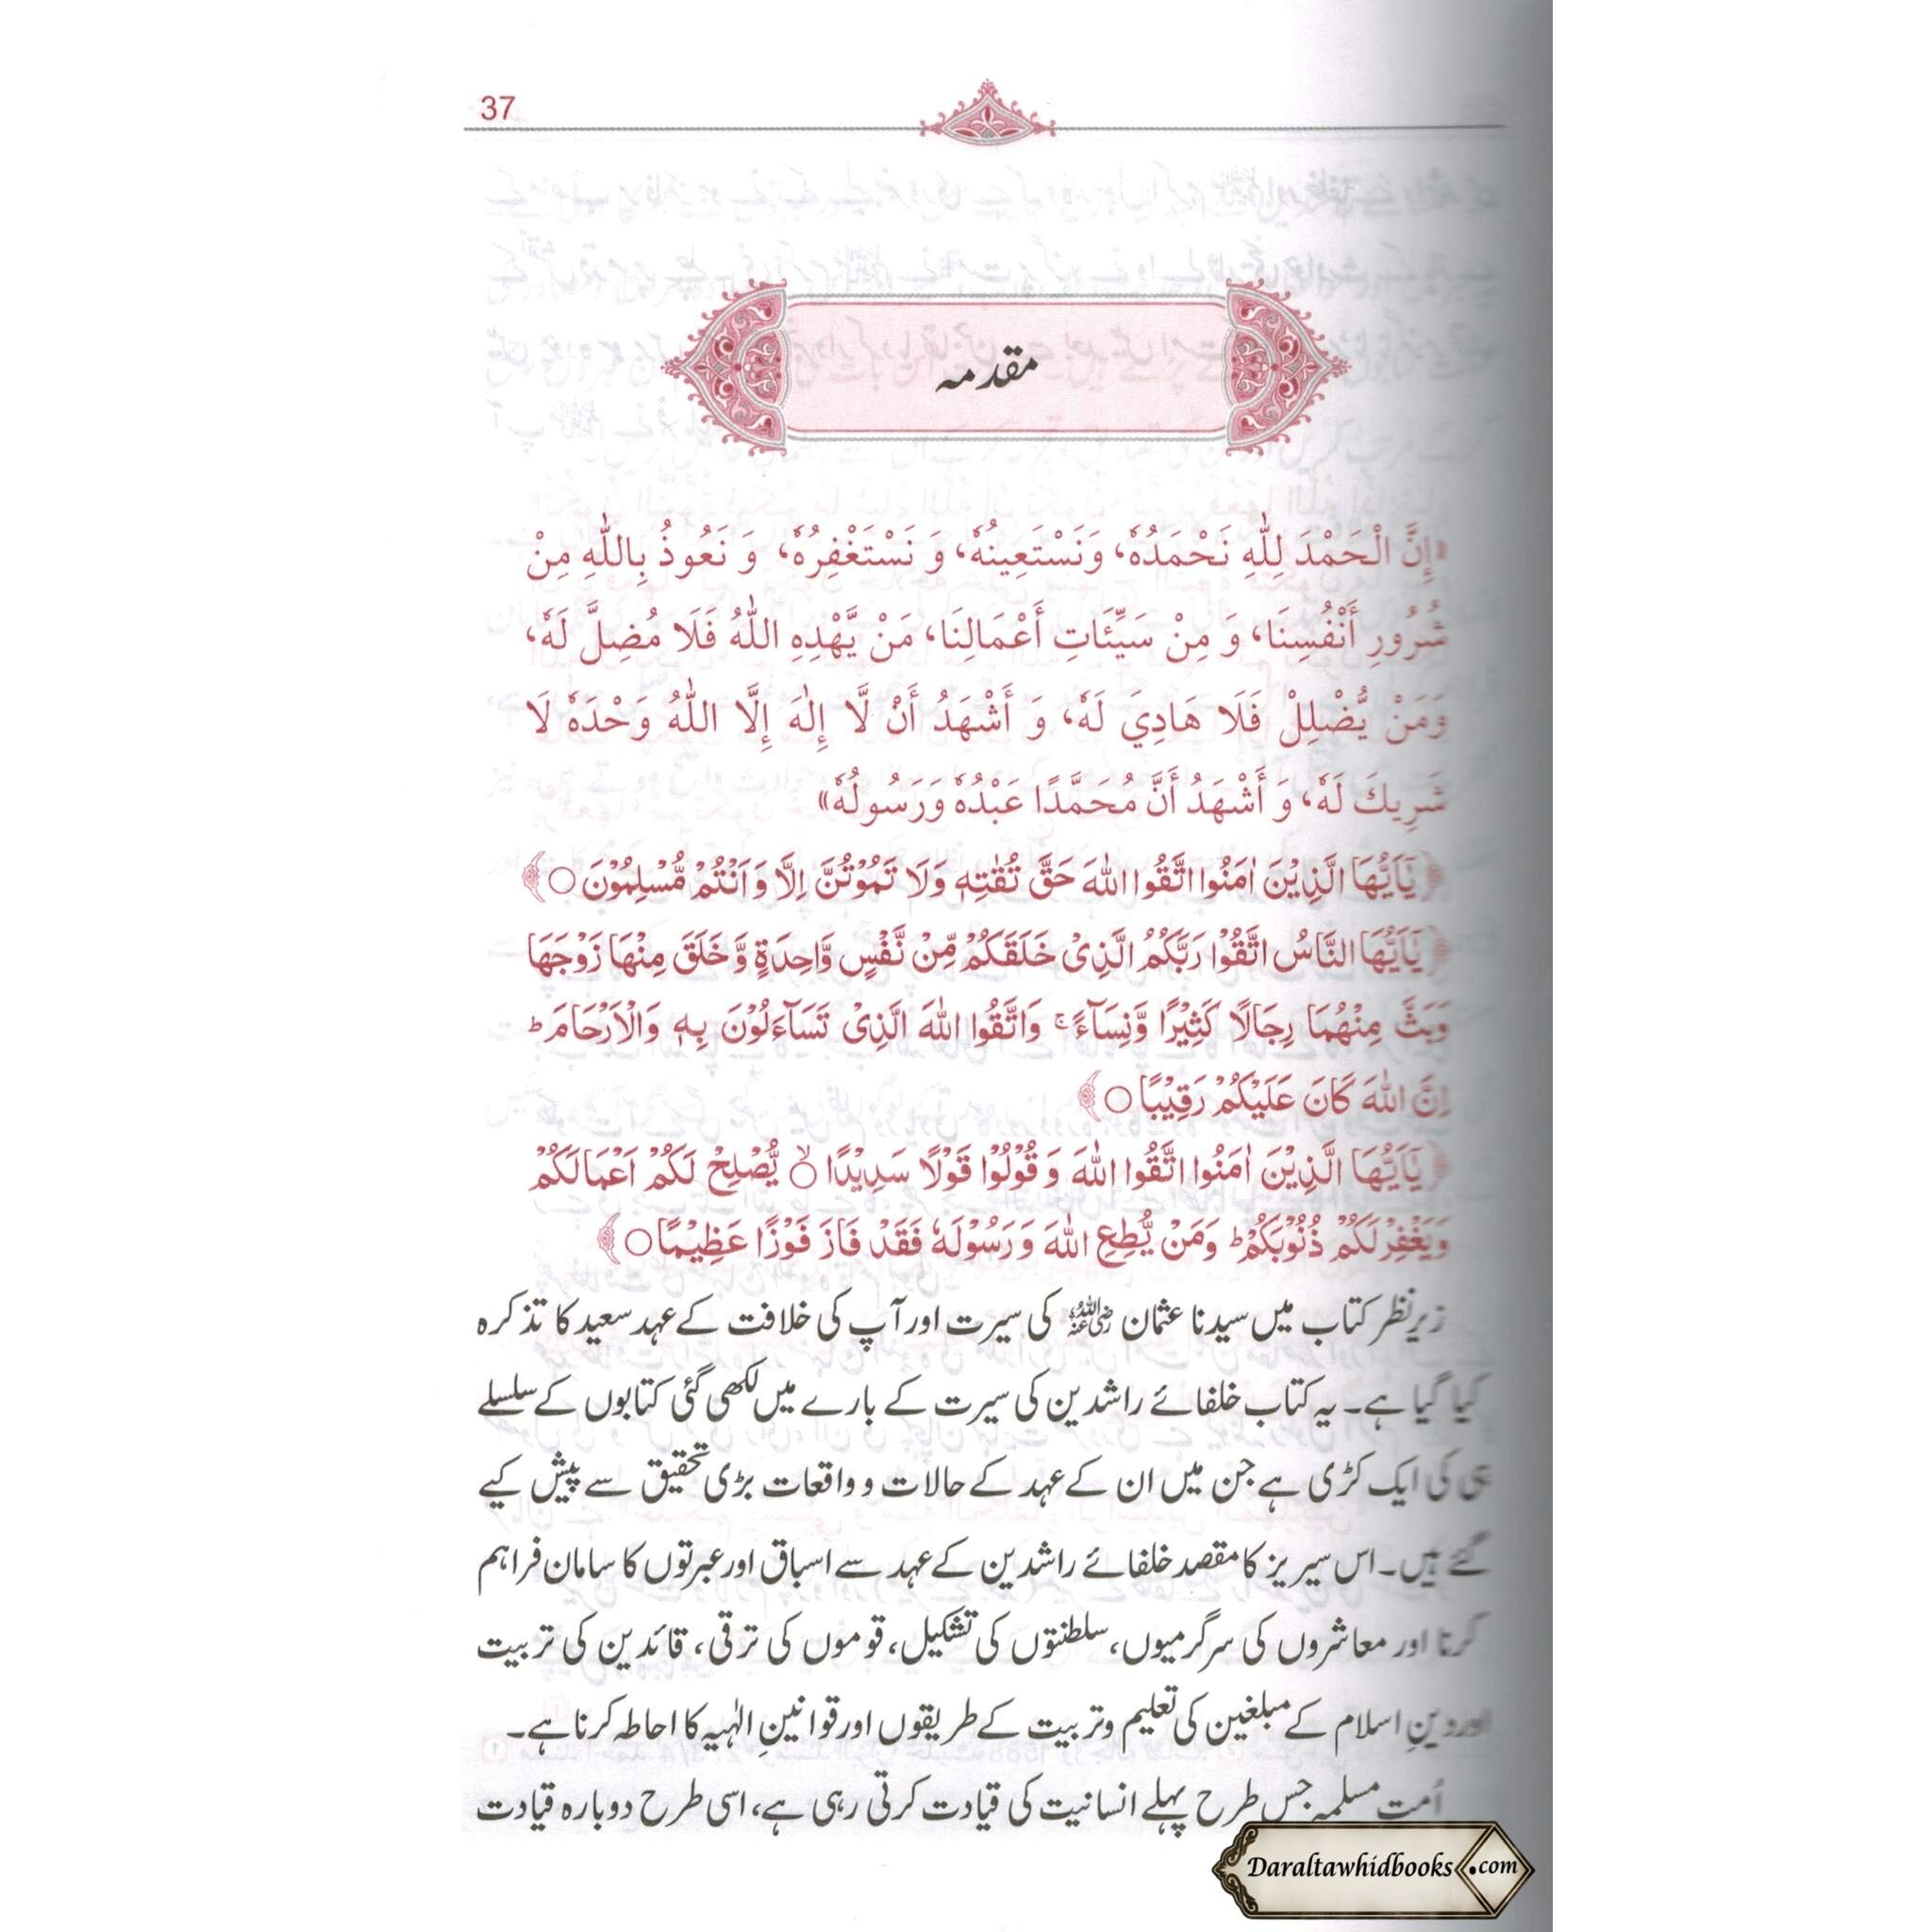 37
مقدمہ
«إِنَّ الْحَمْدَ لِلّٰهِ نَحْمَدُهٗ، وَنَسْتَعِينُهٗ، وَ نَسْتَغْفِرُهٗ، وَ نَعُوذُ بِاللّٰهِ مِنْ
شُرُورِ أَنْفُسِنَا، وَ مِنْ سَيِّئَاتِ أَعْمَالِنَا، مَنْ يَّهْدِهِ اللّٰهُ فَلَا مُضِلَّ لَهٗ،
وَمَنْ يُّضْلِلْ فَلَا هَادِيَ لَهٗ، وَ أَشْهَدُ أَنْ لَّا إِلٰهَ إِلَّا اللّٰهُ وَحْدَهٗ لَا
شَرِيكَ لَهٗ، وَ أَشْهَدُ أَنَّ مُحَمَّدًا عَبْدُهٗ وَرَسُولُهٗ»
﴿يٰۤاَيُّهَا الَّذِيْنَ اٰمَنُوا اتَّقُوا اللّٰهَ حَقَّ تُقٰتِهٖ وَلَا تَمُوْتُنَّ اِلَّا وَاَنْتُمْ مُّسْلِمُوْنَ ○﴾
﴿يٰۤاَيُّهَا النَّاسُ اتَّقُوْا رَبَّكُمُ الَّذِيْ خَلَقَكُمْ مِّنْ نَّفْسٍ وَّاحِدَةٍ وَّ خَلَقَ مِنْهَا زَوْجَهَا
وَبَثَّ مِنْهُمَا رِجَالًا كَثِيْرًا وَّنِسَآءً ۚ وَاتَّقُوا اللّٰهَ الَّذِيْ تَسَآءَلُوْنَ بِهٖ وَالْاَرْحَامَ ؕ
اِنَّ اللّٰهَ كَانَ عَلَيْكُمْ رَقِيْبًا ○﴾
﴿يٰۤاَيُّهَا الَّذِيْنَ اٰمَنُوا اتَّقُوا اللّٰهَ وَ قُوْلُوْا قَوْلًا سَدِيْدًا ○ۙ يُّصْلِحْ لَكُمْ اَعْمَالَكُمْ
وَيَغْفِرْ لَكُمْ ذُنُوْبَكُمْ ؕ وَمَنْ يُّطِعِ اللّٰهَ وَ رَسُوْلَهٗ فَقَدْ فَازَ فَوْزًا عَظِيْمًا ○﴾
زیرِنظر کتاب میں سیدنا عثمان رضی اللہ عنہ کی سیرت اور آپ کی خلافت کے عہد سعید کا تذکرہ
کیا گیا ہے۔ یہ کتاب خلفائے راشدین کی سیرت کے بارے میں لکھی گئی کتابوں کے سلسلے
ہی کی ایک کڑی ہے جن میں ان کے عہد کے حالات و واقعات بڑی تحقیق سے پیش کیے
گئے ہیں۔ اس سیریز کا مقصد خلفائے راشدین کے عہد سے اسباق اور عبرتوں کا سامان فراہم
کرنا اور معاشروں کی سرگرمیوں، سلطنتوں کی تشکیل، قوموں کی ترقی، قائدین کی تربیت
اور دینِ اسلام کے مبلغین کی تعلیم و تربیت کے طریقوں اور قوانینِ الٰہیہ کا احاطہ کرنا ہے۔
اُمت مسلمہ جس طرح پہلے انسانیت کی قیادت کرتی رہی ہے، اسی طرح دوبارہ قیادت
Daraltawhidbooks.com